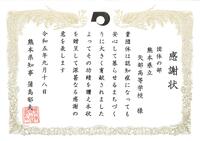 感謝状
団体の部
熊本県立
矢部高等学校 様
貴団体は認知症になっても
安心して暮らせるまちづく
りに大きく貢献されました
よってその功績を讃え本状
を贈呈して深甚なる感謝の
意を表します
令和五年九月十八日
熊本県知事 蒲島郁夫